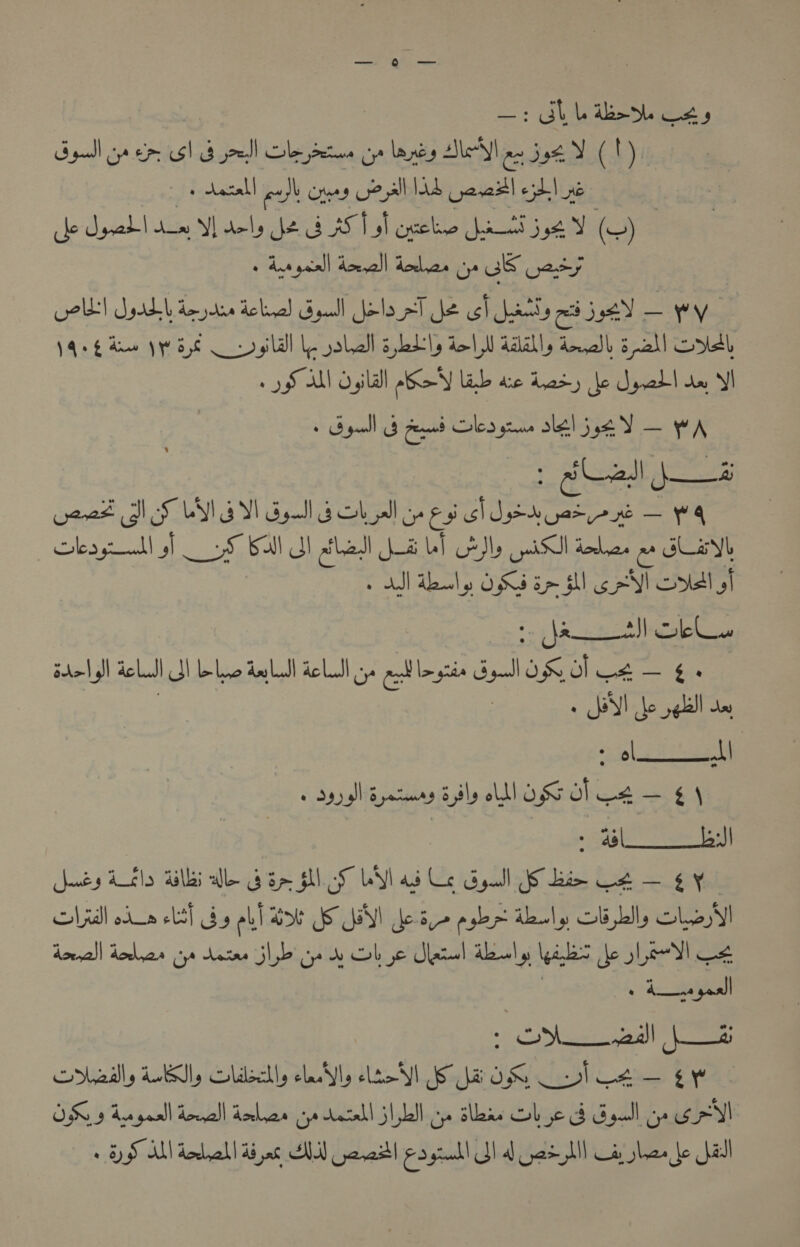 — ٥ —
ويجب ملاحظة ما يأتى : —
(ا) لا يجوز بيع الأسماك وغيرها من مستخرجات البحر فى اى جزء من السوق
غير الجزء المخصص لهذا الغرض ومبين بالرسم المعتمد .
(ب) لا يجوز تشغيل صناعتين أو أكثر فى محل واحد إلا بعد الحصول على
ترخيص كتابى من مصلحة الصحة العمومية .
٣٧ — لا يجوز فتح وتشغيل أى محل آخر داخل السوق لصناعة مندرجة بالجدول الخاص
بالمحلات المضرة بالصحة والمقلقة للراحة والخطرة الصادر بها القانون نمرة ١٣ سنة ١٩٠٤
الا بعد الحصول على رخصة عنه طبقا لأحكام القانون المذكور .
٣٨ — لا يجوز ايجاد مستودعات فسيخ فى السوق .
نقل البضائع :
٣٩ — غير مرخص بدخول أى نوع من العربات فى السوق الا فى الأماكن التى تخصص
بالاتفاق مع مصلحة الكنس والرش أما نقل البضائع الى الدكاكين أو المستودعات
أو المحلات الأخرى المؤجرة فيكون بواسطة اليد .
ساعات الشغل :
٤٠ — يجب أن يكون السوق مفتوحا للبيع من الساعة السابعة صباحا الى الساعة الواحدة
بعد الظهر على الأقل .
المياه :
٤١ — يجب أن تكون المياه وافرة ومستمرة الورود .
النظافة :
٤٢ — يجب حفظ كل السوق بما فيه الأماكن المؤجرة فى حالة نظافة دائمة وغسل
الأرضيات والطرقات بواسطة خرطوم مرة على الأقل كل ثلاثة أيام وفى أثناء هذه الفترات
يجب الاستمرار على تنظيفها بواسطة استعمال عربات يد من طراز معتمد من مصلحة الصحة
العمومية .
نقل الفضلات :
٤٣ — يجب أن يكون نقل كل الأحشاء والأمعاء والمتخلفات والكناسة والفضلات
الأخرى من السوق فى عربات مغطاة من الطراز المعتمد من مصلحة الصحة العمومية ويكون
النقل على مصاريف االمرخص له الى المستودع المخصص لذلك بمعرفة المصلحة المذكورة .